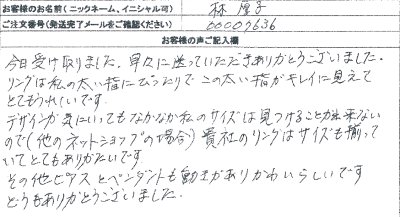 お客様のお名前(ニックネーム、イニシャル可) 林 厚子
ご注文番号(発送完了メールをご確認ください) 00007636
お客様の声ご記入欄
今日受け取りました。早々に送っていただきありがとうございました。
リングは私の太い指にぴったりでこの太い指がキレイに見えて
とてもうれしいです。
デザインが気にいってもなかなか私のサイズは見つけることが出来ない
ので(他のネットショップの場合)貴社のリングはサイズも揃って
いてとてもありがたいです
その他ピアスとペンダントも動きがありかわいらしいです
どうもありがとうございました。